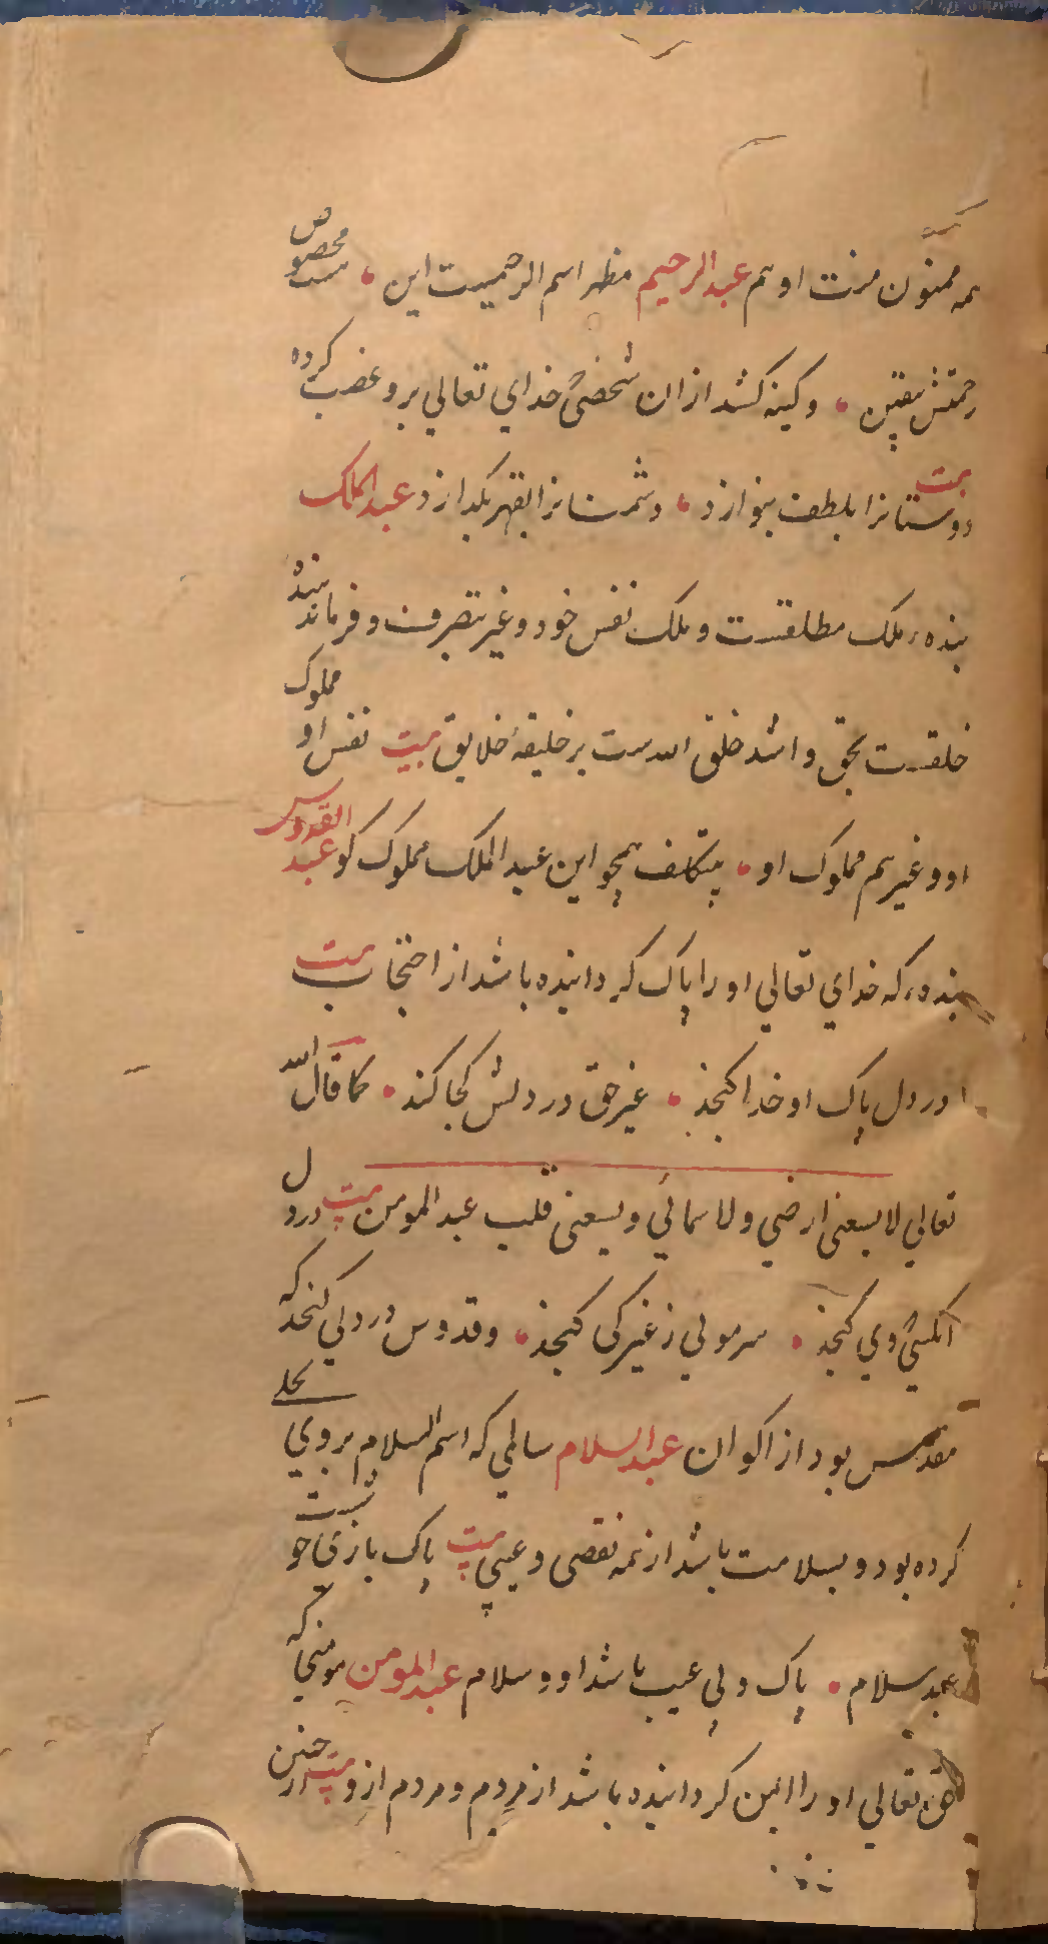 همه ممنون منت او هم عبد الرحیم مظهر اسم الرحیمست این مخصوص
رحمتش بیقین و کینه کشد از ان شخصی که خدای تعالی برو غضب کرده
بیت دوستانرا بلطف بنوازد دشمنانرا بقهر بگدازد عبد الملک
بنده ملک مطلقست و ملک نفس خود و غیر بتصرف و فرماینده
خلقست بحق و اشد خلق الله ست بر خلیقهٔ خلایق بیت نفس او مملوک
او و غیر هم مملوک او بیتکلف همچو این عبد الملک مملوک کو عبد القدوس
بنده که خدای تعالی او را پاک کردانیده باشد از احتجاب بیت
در دل پاک او خدا کنجد غیر حق در دلش کجا کنجد کما قال الله
تعالی لا یسعنی ارضی ولا سمائی و یسعنی قلب عبد المومن بیت در دل
انکسی که وی کنجد سر مویی ز غیر کی کنجد و قدوس در دلی کنجد که
مقدس بود از اکوان عبد السلام سالمی که اسم السلام بر وی تجلی
کرده بود و بسلامت باشد از همه نقصی و عیبی بیت پاک بازی چو
عبد سلام پاک و بی عیب باشد او و سلام عبد المومن مومنی که
حق تعالی او را ایمن کردانیده باشد از مردم و مردم از و بیت